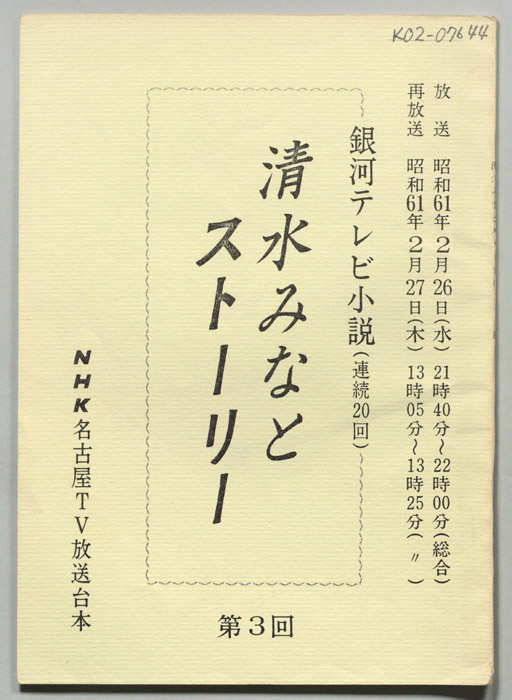 K02-07644
放送 昭和61年2月26日(水) 21時40分〜22時00分(総合)
再放送 昭和61年2月27日(木) 13時05分〜13時25分( 〃 )
銀河テレビ小説(連続20回)
清水みなと
ストーリー
第3回
NHK名古屋TV放送台本